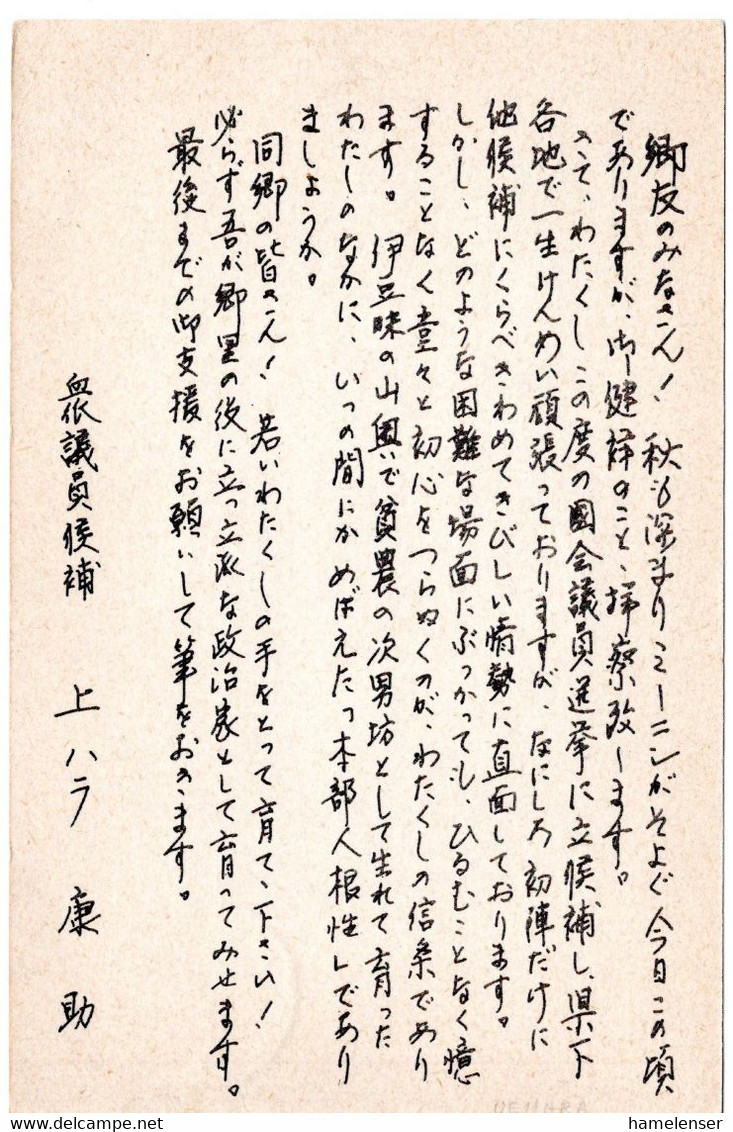 郷友のみなさん！　秋も深まりミーニシがそよぐ今日この頃
でありますが、御健祥のこと、拝察致します。
さて、わたくしこの度の國会議員選挙に立候補し、県下
各地で一生けんめい頑張っておりますが、なにしろ初陣だけに
他候補にくらべきわめてきびしい情勢に直面しております。
しかし、どのような困難な場面にぶつかっても、ひるむことなく憶
することなく堂々と初心をつらぬくのが、わたくしの信条であり
ます。　伊豆味の山奥で貧農の次男坊として生れて育った
わたしのなかに、いつの間にかめばえたっ本部人根性しであり
ましょうか。
同郷の皆さん！　若いわたくしの手をとって育てゝ下さい！
必らず吾が郷里の後に立つ立派な政治家として育ってみせます。
最後までの御支援をお願いして筆をおきます。
衆議員候補　上ハラ　康助
UEHARA
hamelenser